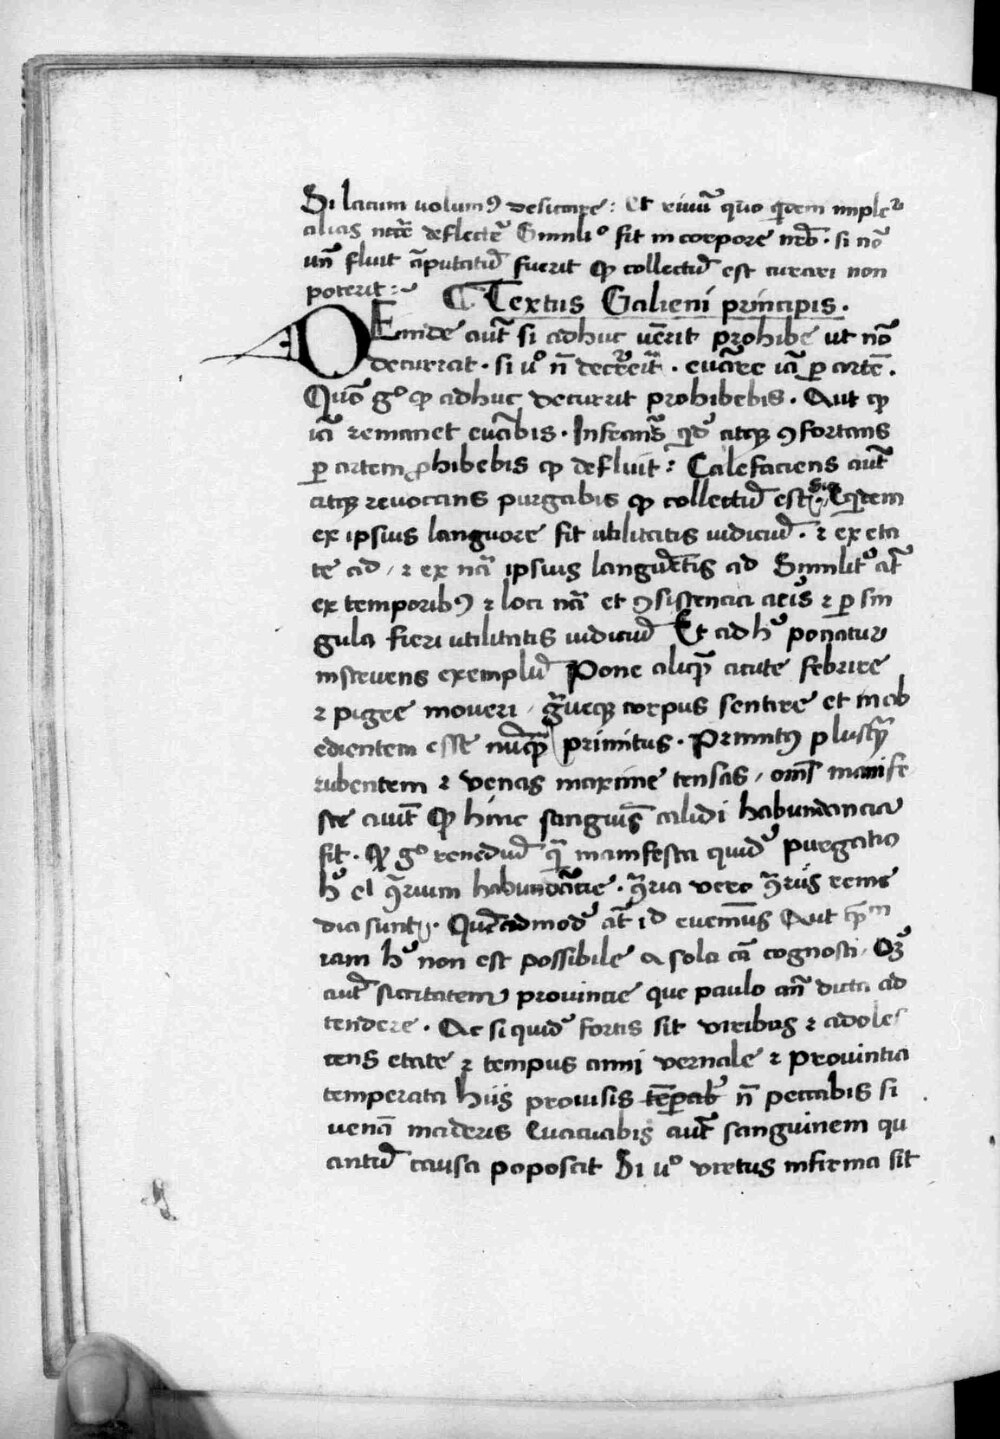 Si lacum volumꝰ desiccare: et riuū quo qͥdem implet᷑
alias nccē deflectē Simil'r fit in corpore nrō. si nō
vñ fluit āputatū fuerit qd̓ collectū est curari non
poterit:~ ¶ Textus Galieni principis.
DEinde aut̄ si adhuc uērit prohibe ut nō
decurrat. si uͦ n̄ decrēit. euāre iā ꝑ artē.
Quō gͦ qd̓ adhuc decurrit prohibebis. Aut qd̓
iā remanet euābis. Infrāns qͥdē atqꝫ ꝯfortans
ꝑ artem ꝓhibebis qd̓ defluit: Calefaciens aut̄
atqꝫ reuocans purgabis qd̓ collectū est. Siqͥdem
ex ipsius languore fit utilitatis iudiciū. ⁊ ex eta
te ad / ⁊ ex nā ipsius languētis ad Similitͦ at̄
ex temporibꝰ ⁊ loci nā et ꝯsistencia aeris ⁊ ꝑ sin
gula fieri utilitatis iudiciū Et ad hͦ ponatur
instruens exemplū Pone aliqm̄ acute febrire
⁊ pigre moueri / grāueqꝫ corpus sentire et inob
edientem esse nūqm̄ primitus. Primitꝰ plusqm̄
rubentem ⁊ venas maxime tensas / oms̄ manife
ste aiunt qd̓ hinc sanguīs calidi habundancia
fit. Qd̓ gͦ remediū qͣ manifesta quidē purgatio
hͦ eī ꝯͣrium habundācie. ꝯͣria vero ꝯͣriis reme
dia sunt. Quēadmodū at̄ id euenīus Aut qm̄
iam hͦ non est possibile a sola cā cognosci. Oꝫ
aut̄ siccitatem prouincie que paulo añ dicta ad
tendere. Ac si quidē fortis sit viribus ⁊ adoles
cens etate ⁊ tempus anni vernale ⁊ prouintia
temperata hiis prouisis n̄ peccabis si
venā incideris Euacuabis aut̄ sanguinem qu
antū causa poposcit Si uͦ virtus infirma sit